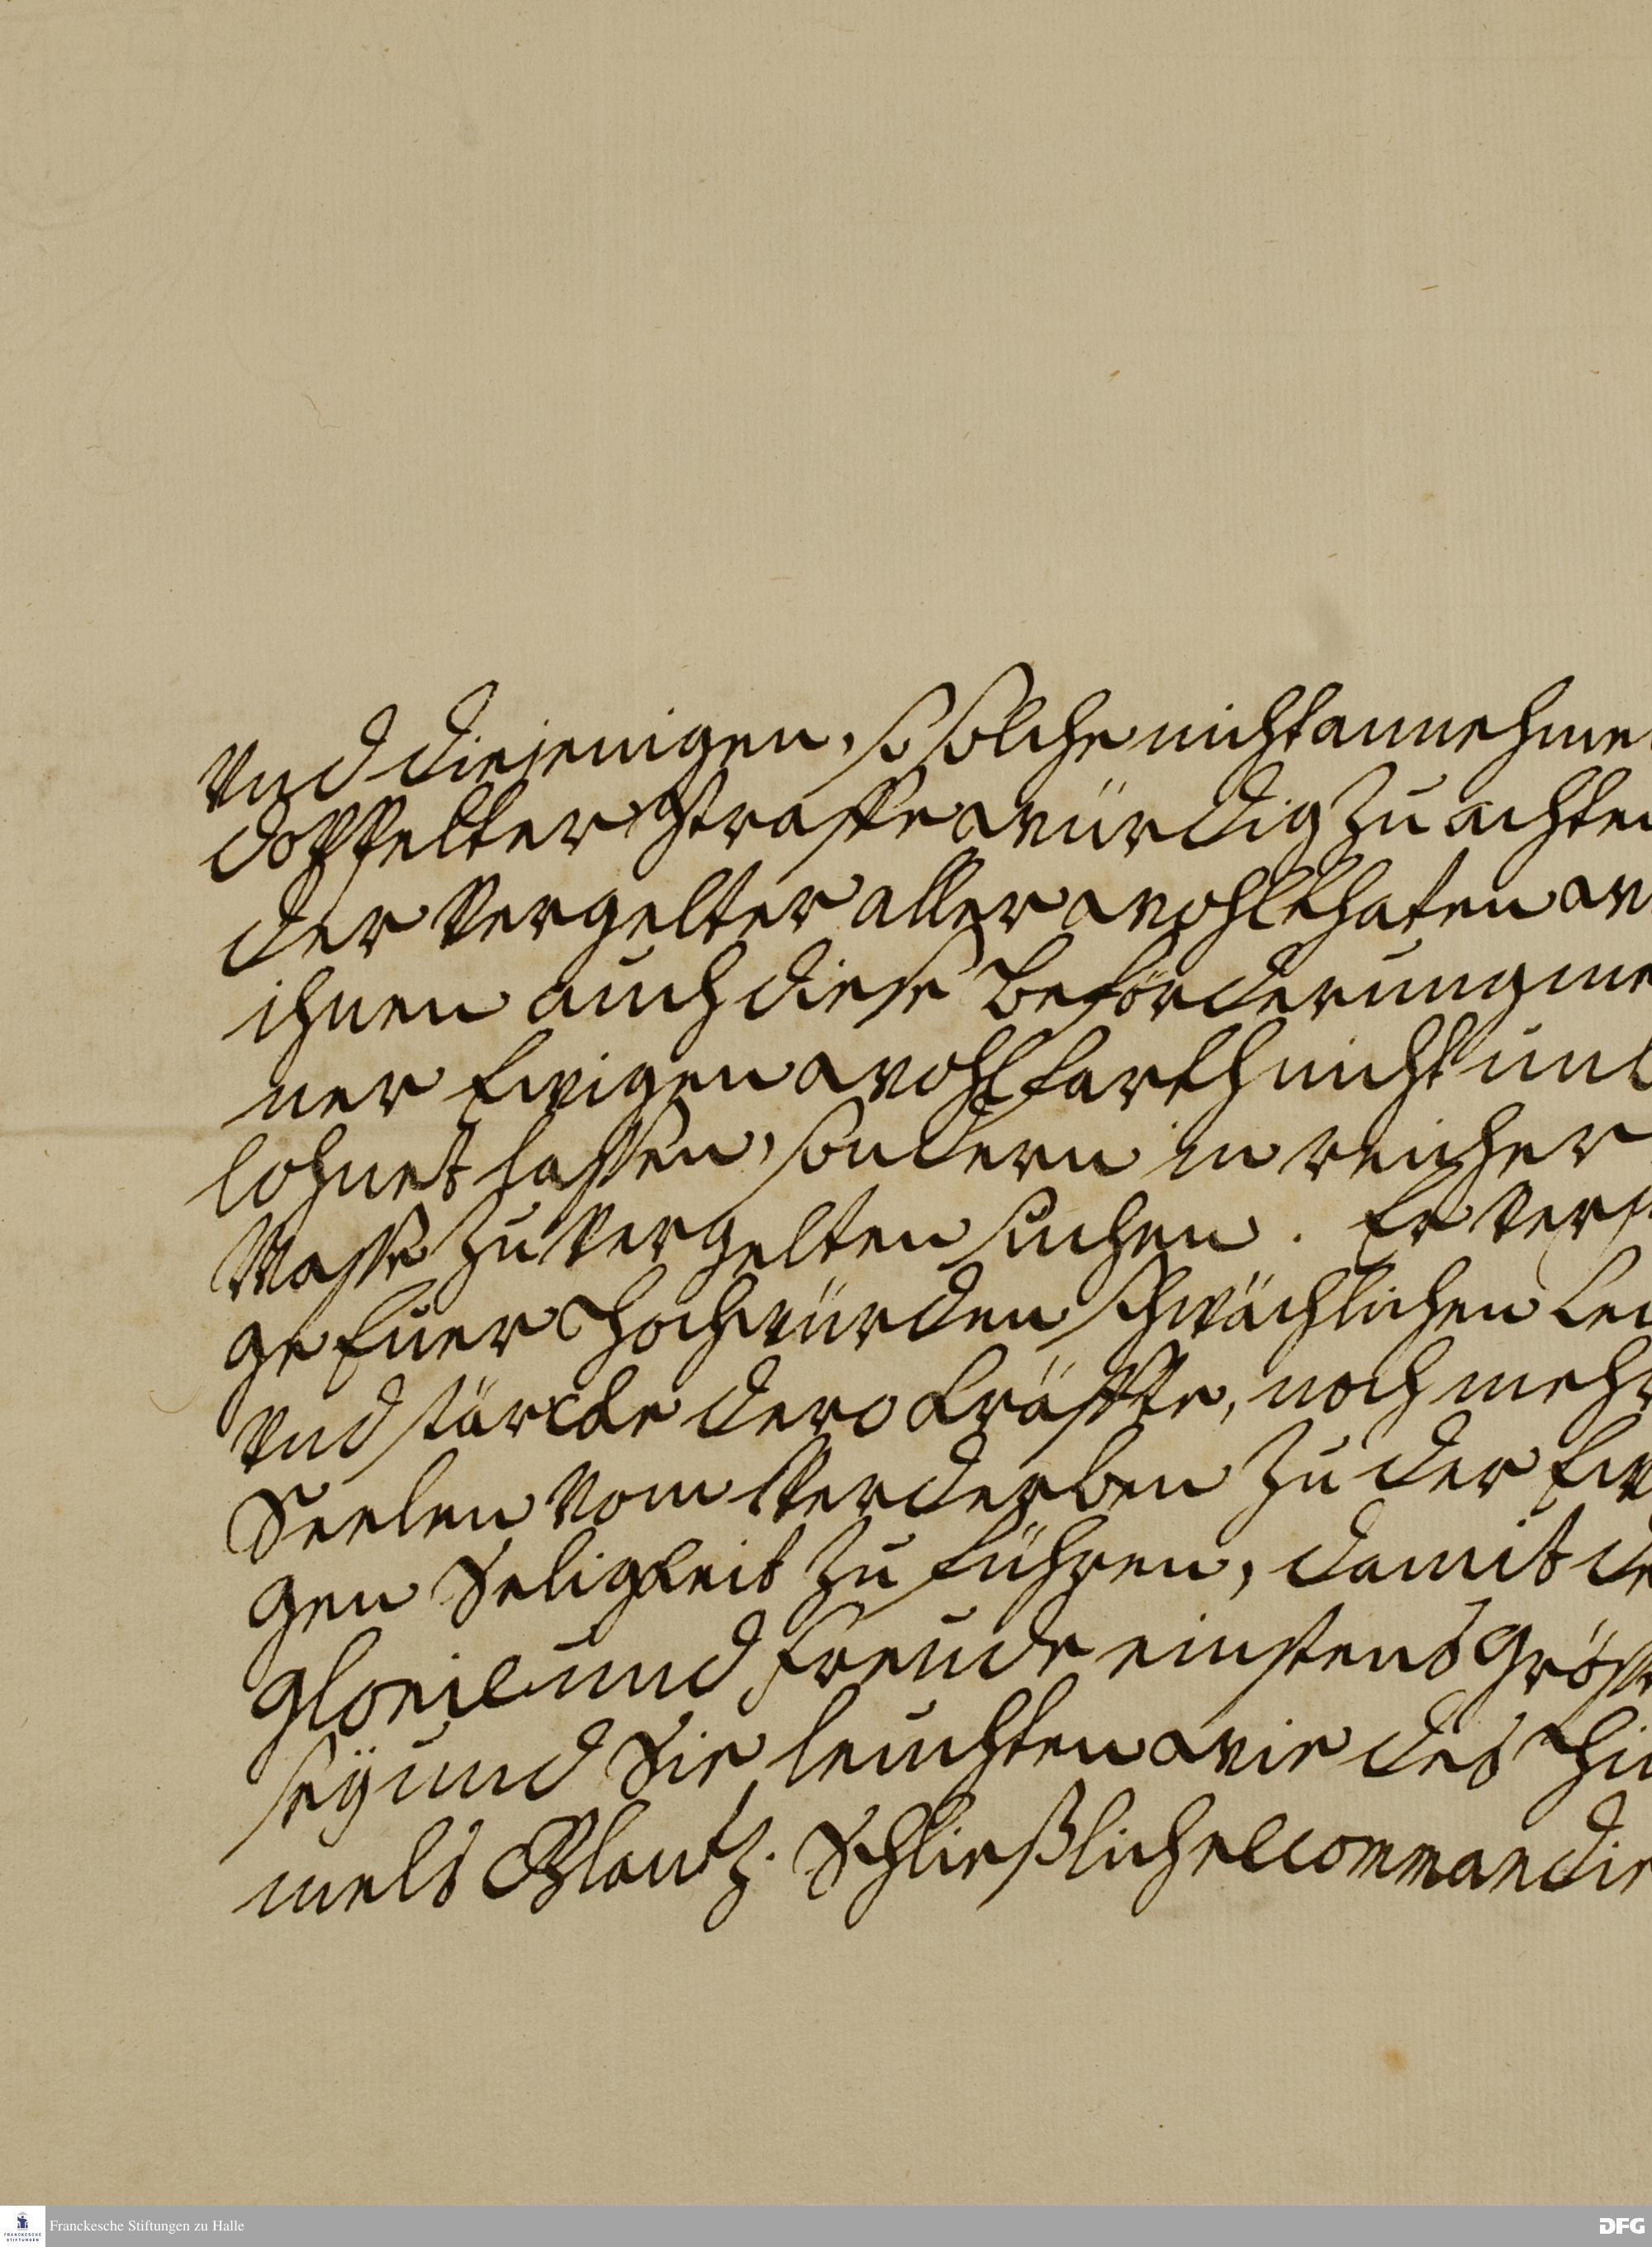 Und diejenigen, so solche nicht annehme
doppelter Straffe würdig zu achten
der Vergelter aller wohlthaten w
ihnen auch diese beförderung me
ner Ewigen wohlfarth nicht unb
lohnet lassen, sondern in reicher
Masse zu Vergelten suchen. Er Vers
ge Euer Hochwürden schwächlichen Lei
Und stärcke dero Kräffte, noch mehr
Seelen vom Verderben zu der Ew
gen Seligkeit zu führen, damit de
Glorie und Freude einstens gröss
seÿ und Sie leuchten wie des Him
mels Glantz. Schließlich recommandir
Franckesche Stiftungen zu Halle
DFG